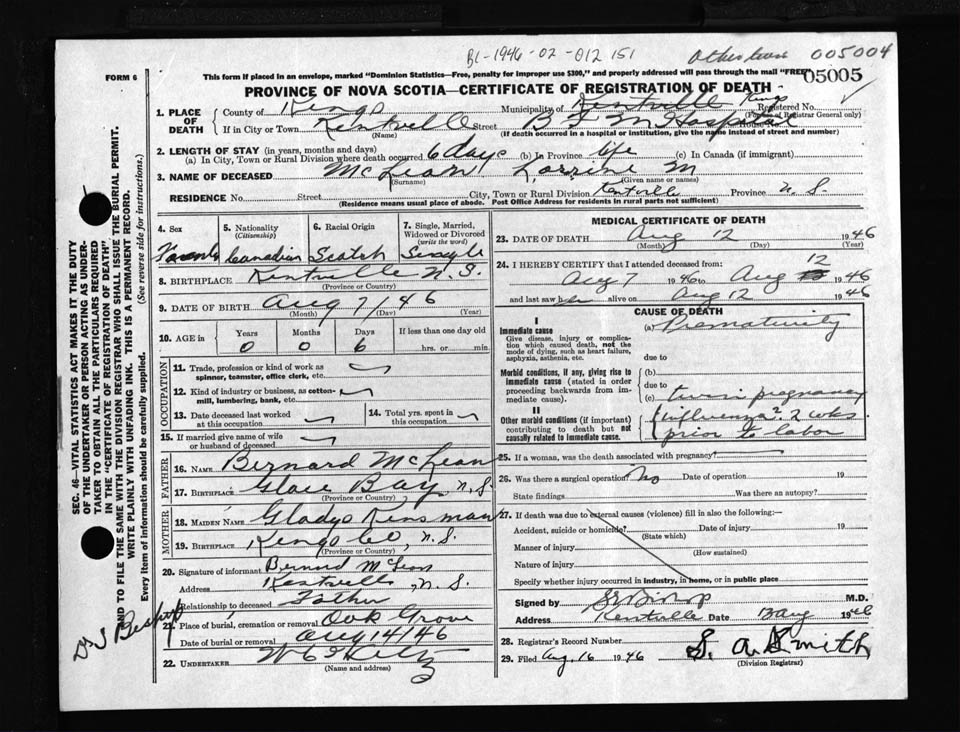 BL-1946-02-012151
Other twin 005004
FORM 6
This form if placed in an envelope, marked "Dominion Statistics—Free, penalty for improper use $300," and properly addressed will pass through the mail "FREE"
05005
PROVINCE OF NOVA SCOTIA—CERTIFICATE OF REGISTRATION OF DEATH
1. PLACE OF DEATH { County of Kings Municipality of Kentville Kings Registered No.
(For use of Registrar General only)
If in City or Town Kentville Street B F M Hospital
(Name) (If death occurred in a hospital or institution, give the name instead of street and number)
2. LENGTH OF STAY (in years, months and days)
(a) In City, Town or Rural Division where death occurred 6 days (b) In Province life (c) In Canada (if immigrant)
3. NAME OF DECEASED McLean Lorrine M
(Surname) (Given name or names)
RESIDENCE No. Street City, Town or Rural Division Kentville Province N.S
(Residence means usual place of abode. Post Office Address for residents in rural parts not sufficient)
4. Sex 5. Nationality (Citizenship) 6. Racial Origin 7. Single, Married, Widowed or Divorced (write the word)
Female Canadian Scotch Single
8. BIRTHPLACE Kentville N.S.
(Province or Country)
9. DATE OF BIRTH Aug 7/46
(Month) (Day) (Year)
10. AGE in { Years Months Days If less than one day old
0 0 6 hrs. or min.
OCCUPATION
11. Trade, profession or kind of work as spinner, teamster, office clerk, etc.
12. Kind of industry or business, as cotton-mill, lumbering, bank, etc.
13. Date deceased last worked at this occupation
14. Total yrs. spent in this occupation
15. If married give name of wife or husband of deceased
FATHER
16. NAME Bernard McLean
17. BIRTHPLACE Glace Bay, N.S.
(Province or Country)
MOTHER
18. MAIDEN NAME Gladys Kinsman
19. BIRTHPLACE Kings Co, N.S.
(Province or Country)
20. Signature of informant Bernard McLean
Address Kentville, N.S.
Relationship to deceased Father
21. Place of burial, cremation or removal Oak Grove
Date of burial or removal Aug 14/46
22. UNDERTAKER
(Name and address)
MEDICAL CERTIFICATE OF DEATH
23. DATE OF DEATH Aug 12 1946
(Month) (Day) (Year)
24. I HEREBY CERTIFY that I attended deceased from:
Aug 7 1946 to Aug 12 1946
and last saw her alive on Aug 12 1946
CAUSE OF DEATH
I
Immediate cause (a) Prematurity
Give disease, injury or complication which caused death, not the mode of dying, such as heart failure, asphyxia, asthenia, etc.
due to
Morbid conditions, if any, giving rise to immediate cause (stated in order proceeding backwards from immediate cause).
(b)
due to
(c) twin pregnancy
II
Other morbid conditions (if important) contributing to death but not causally related to immediate cause.
{ influenza 2 wks. prior to labor
25. If a woman, was the death associated with pregnancy?
26. Was there a surgical operation? No Date of operation 19
State findings Was there an autopsy?
27. If death was due to external causes (violence) fill in also the following:—
Accident, suicide or homicide? Date of injury 19
(State which)
Manner of injury
(How sustained)
Nature of injury
Specify whether injury occurred in industry, in home, or in public place
Signed by Bishop M.D.
Address Kentville Date 13 Aug 1946
28. Registrar's Record Number
29. Filed Aug. 16 1946 S. A. Smith
(Division Registrar)
SEC. 46—VITAL STATISTICS ACT MAKES IT THE DUTY
OF THE UNDERTAKER OR PERSON ACTING AS UNDER-
TAKER TO OBTAIN ALL THE PARTICULARS REQUIRED
IN THE "CERTIFICATE OF REGISTRATION OF DEATH"
AND TO FILE THE SAME WITH THE DIVISION REGISTRAR WHO SHALL ISSUE THE BURIAL PERMIT.
WRITE PLAINLY WITH UNFADING INK. THIS IS A PERMANENT RECORD.
Every item of information should be carefully supplied. (See reverse side for instructions.)
Bishop